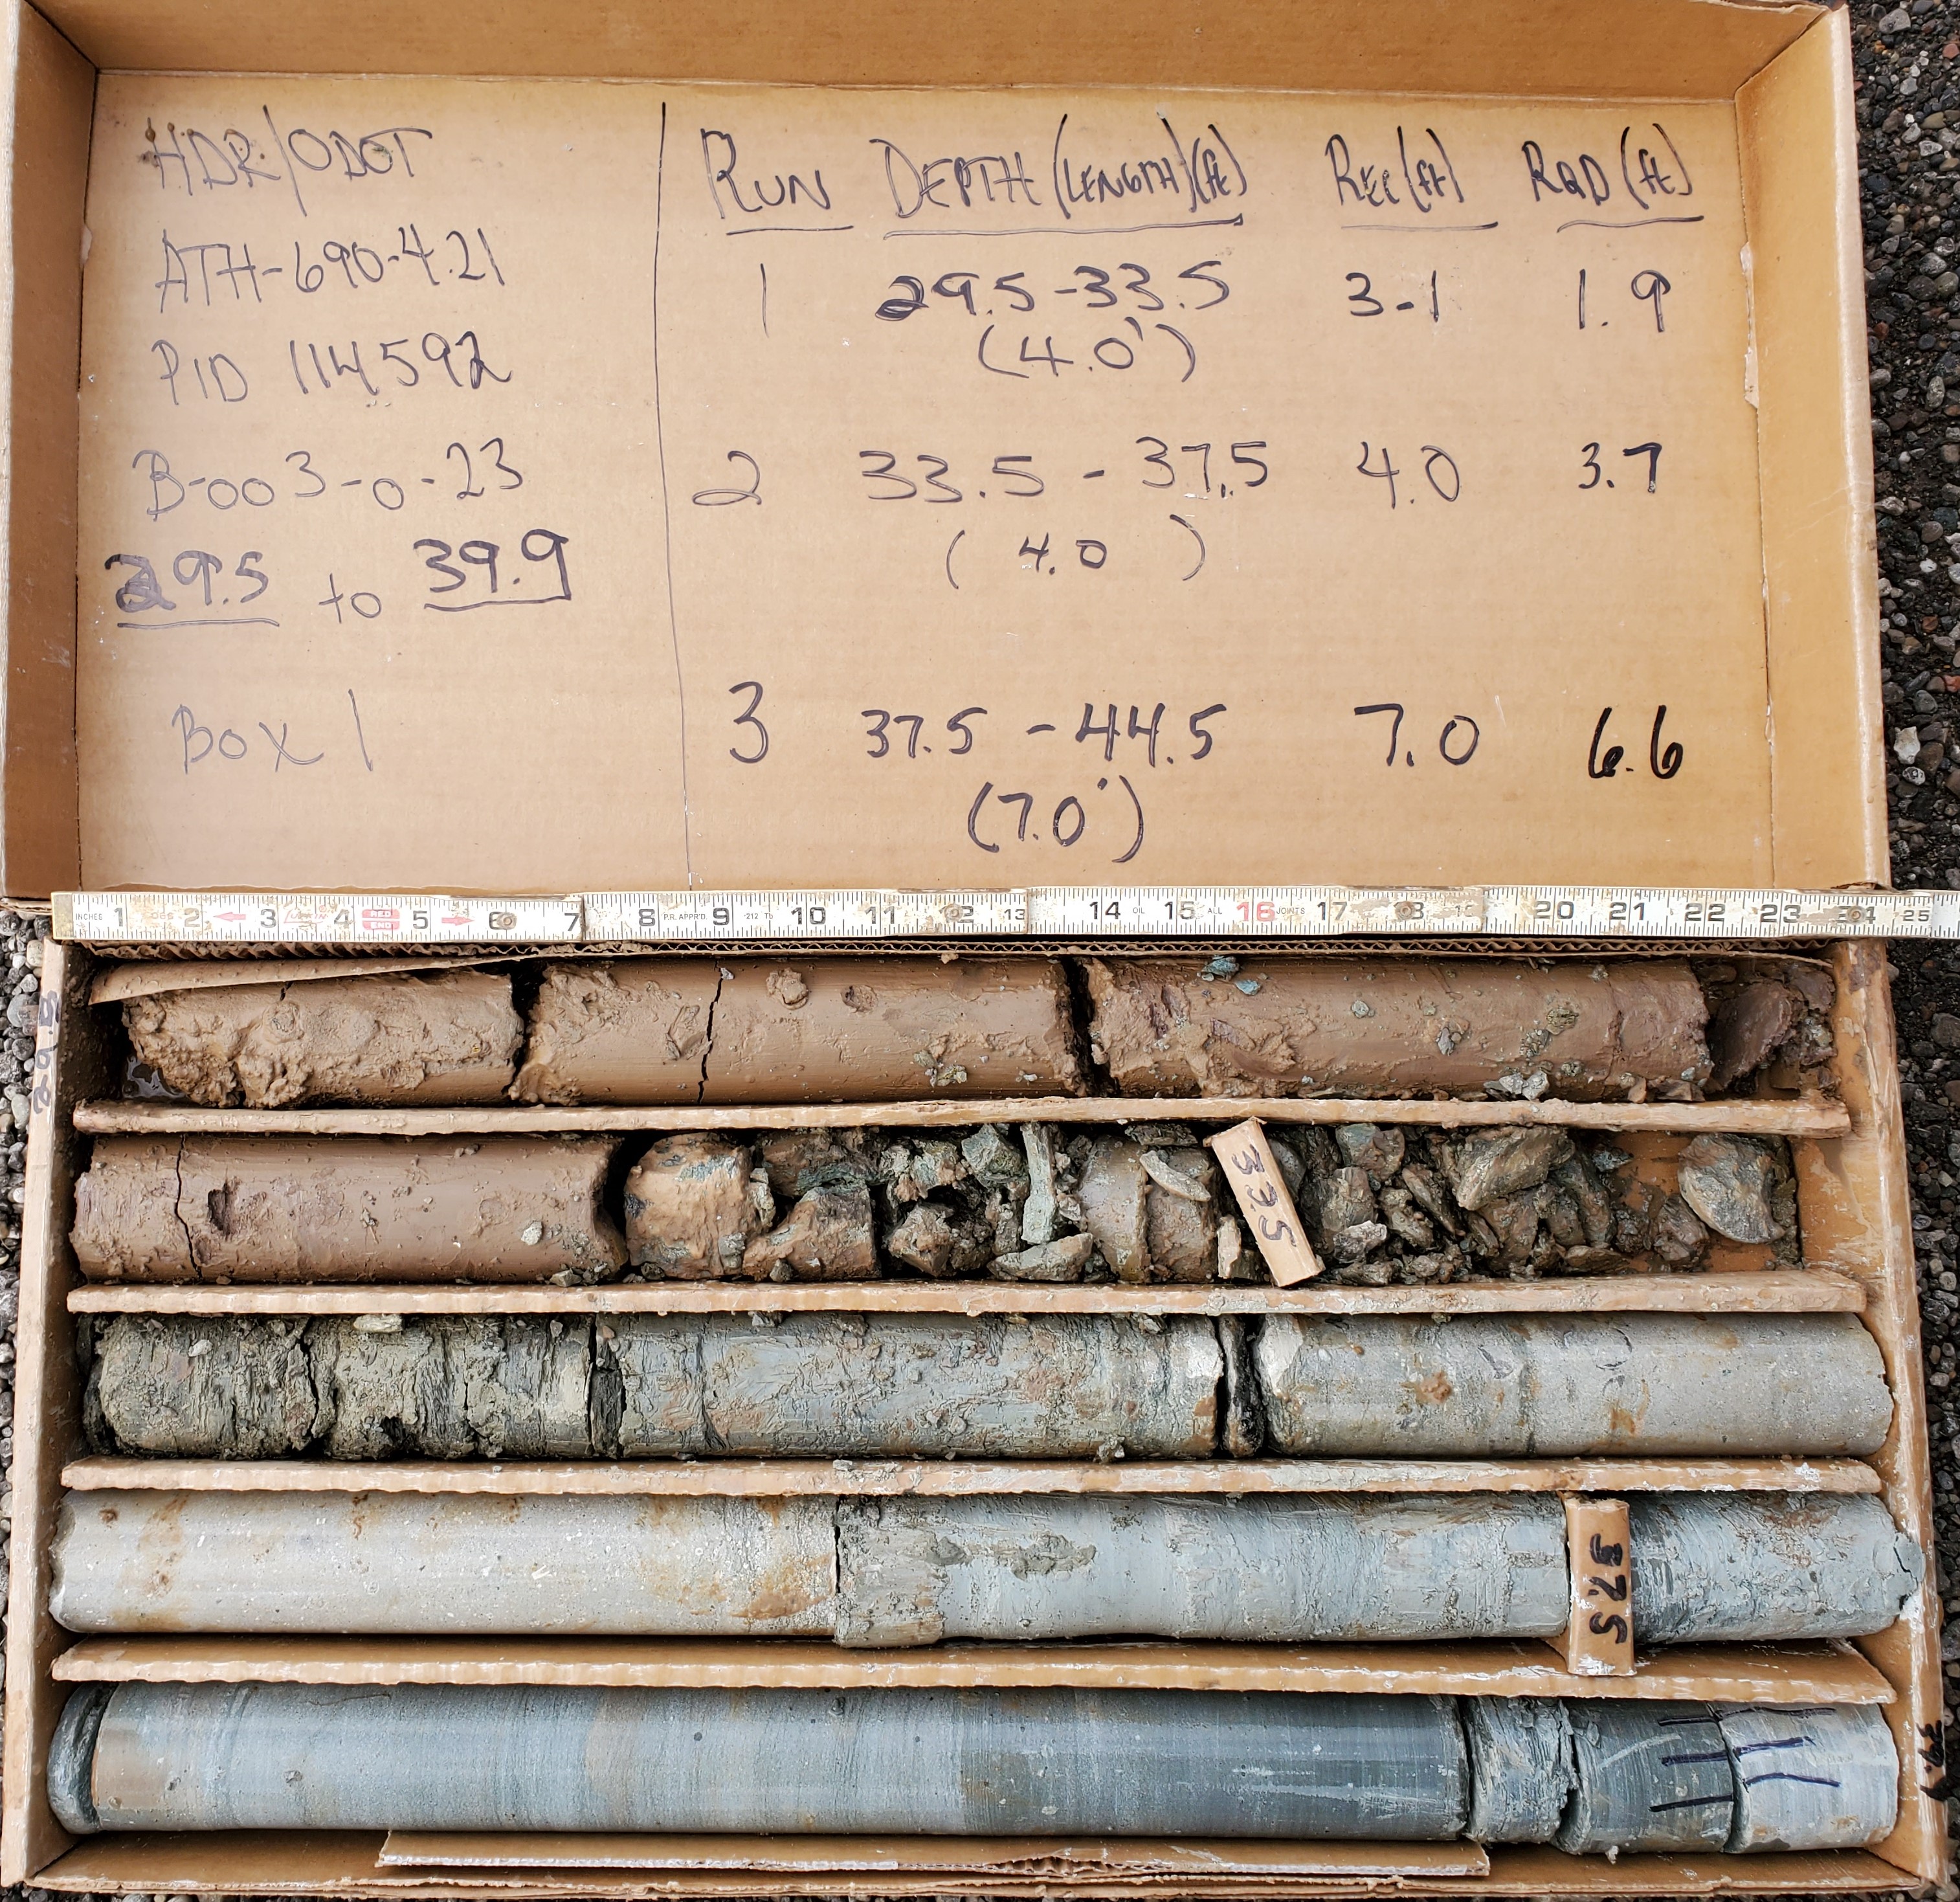 HDR/ODOT
ATH-690-4.21
PID 114592
B-003-0-23
29.5 to 39.9
Box 1
RUN DEPTH (LENGTH)(ft) REC(ft) RQD (ft)
1 29.5-33.5 3-1 1.9
(4.0')
2 33.5 - 37.5 4.0 3.7
(4.0 )
3 37.5 - 44.5 7.0 6.6
(7.0')
INCHES 1 2 3 4 RED END 5 6 7 8 P.R. APPR'D. 9 10 11 12 13 14 OIL 15 ALL 16 JOINTS 17 18 19 20 21 22 23 24 25
29.5
33.5
37.5